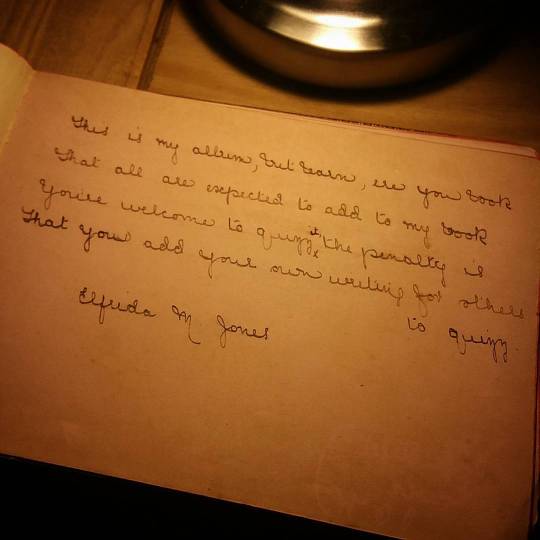 This is my album, but learn, ere you look
That all are expected to add to my book
You're welcome to quizz it, the penalty is
That you add your own writing for others
to quizz.
Elfrida M Jones